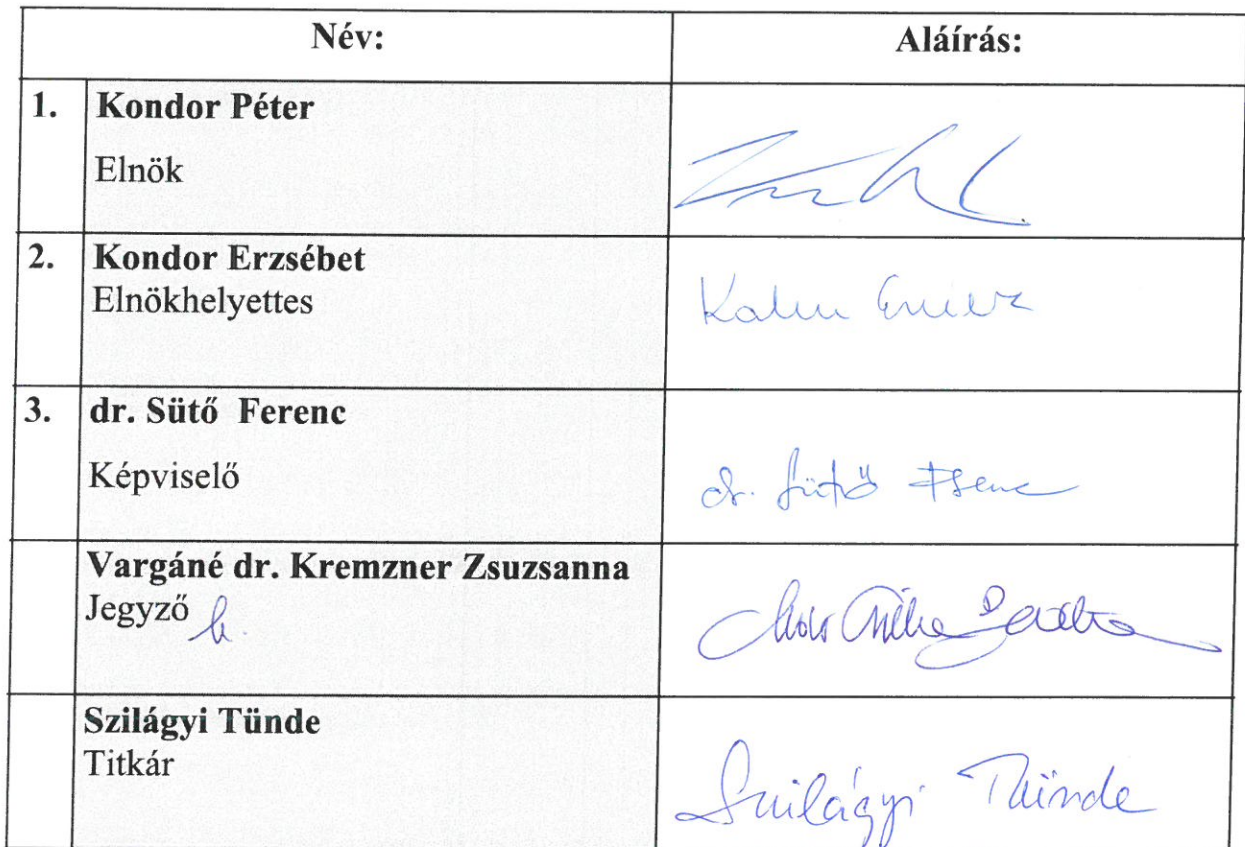 Név: Aláírás:
1. Kondor Péter
Elnök
2. Kondor Erzsébet
Elnökhelyettes
3. dr. Sütő Ferenc
Képviselő
dr. Sütő Ferenc
Vargáné dr. Kremzner Zsuzsanna
Jegyző h.
Szilágyi Tünde
Titkár
Szilágyi Tünde